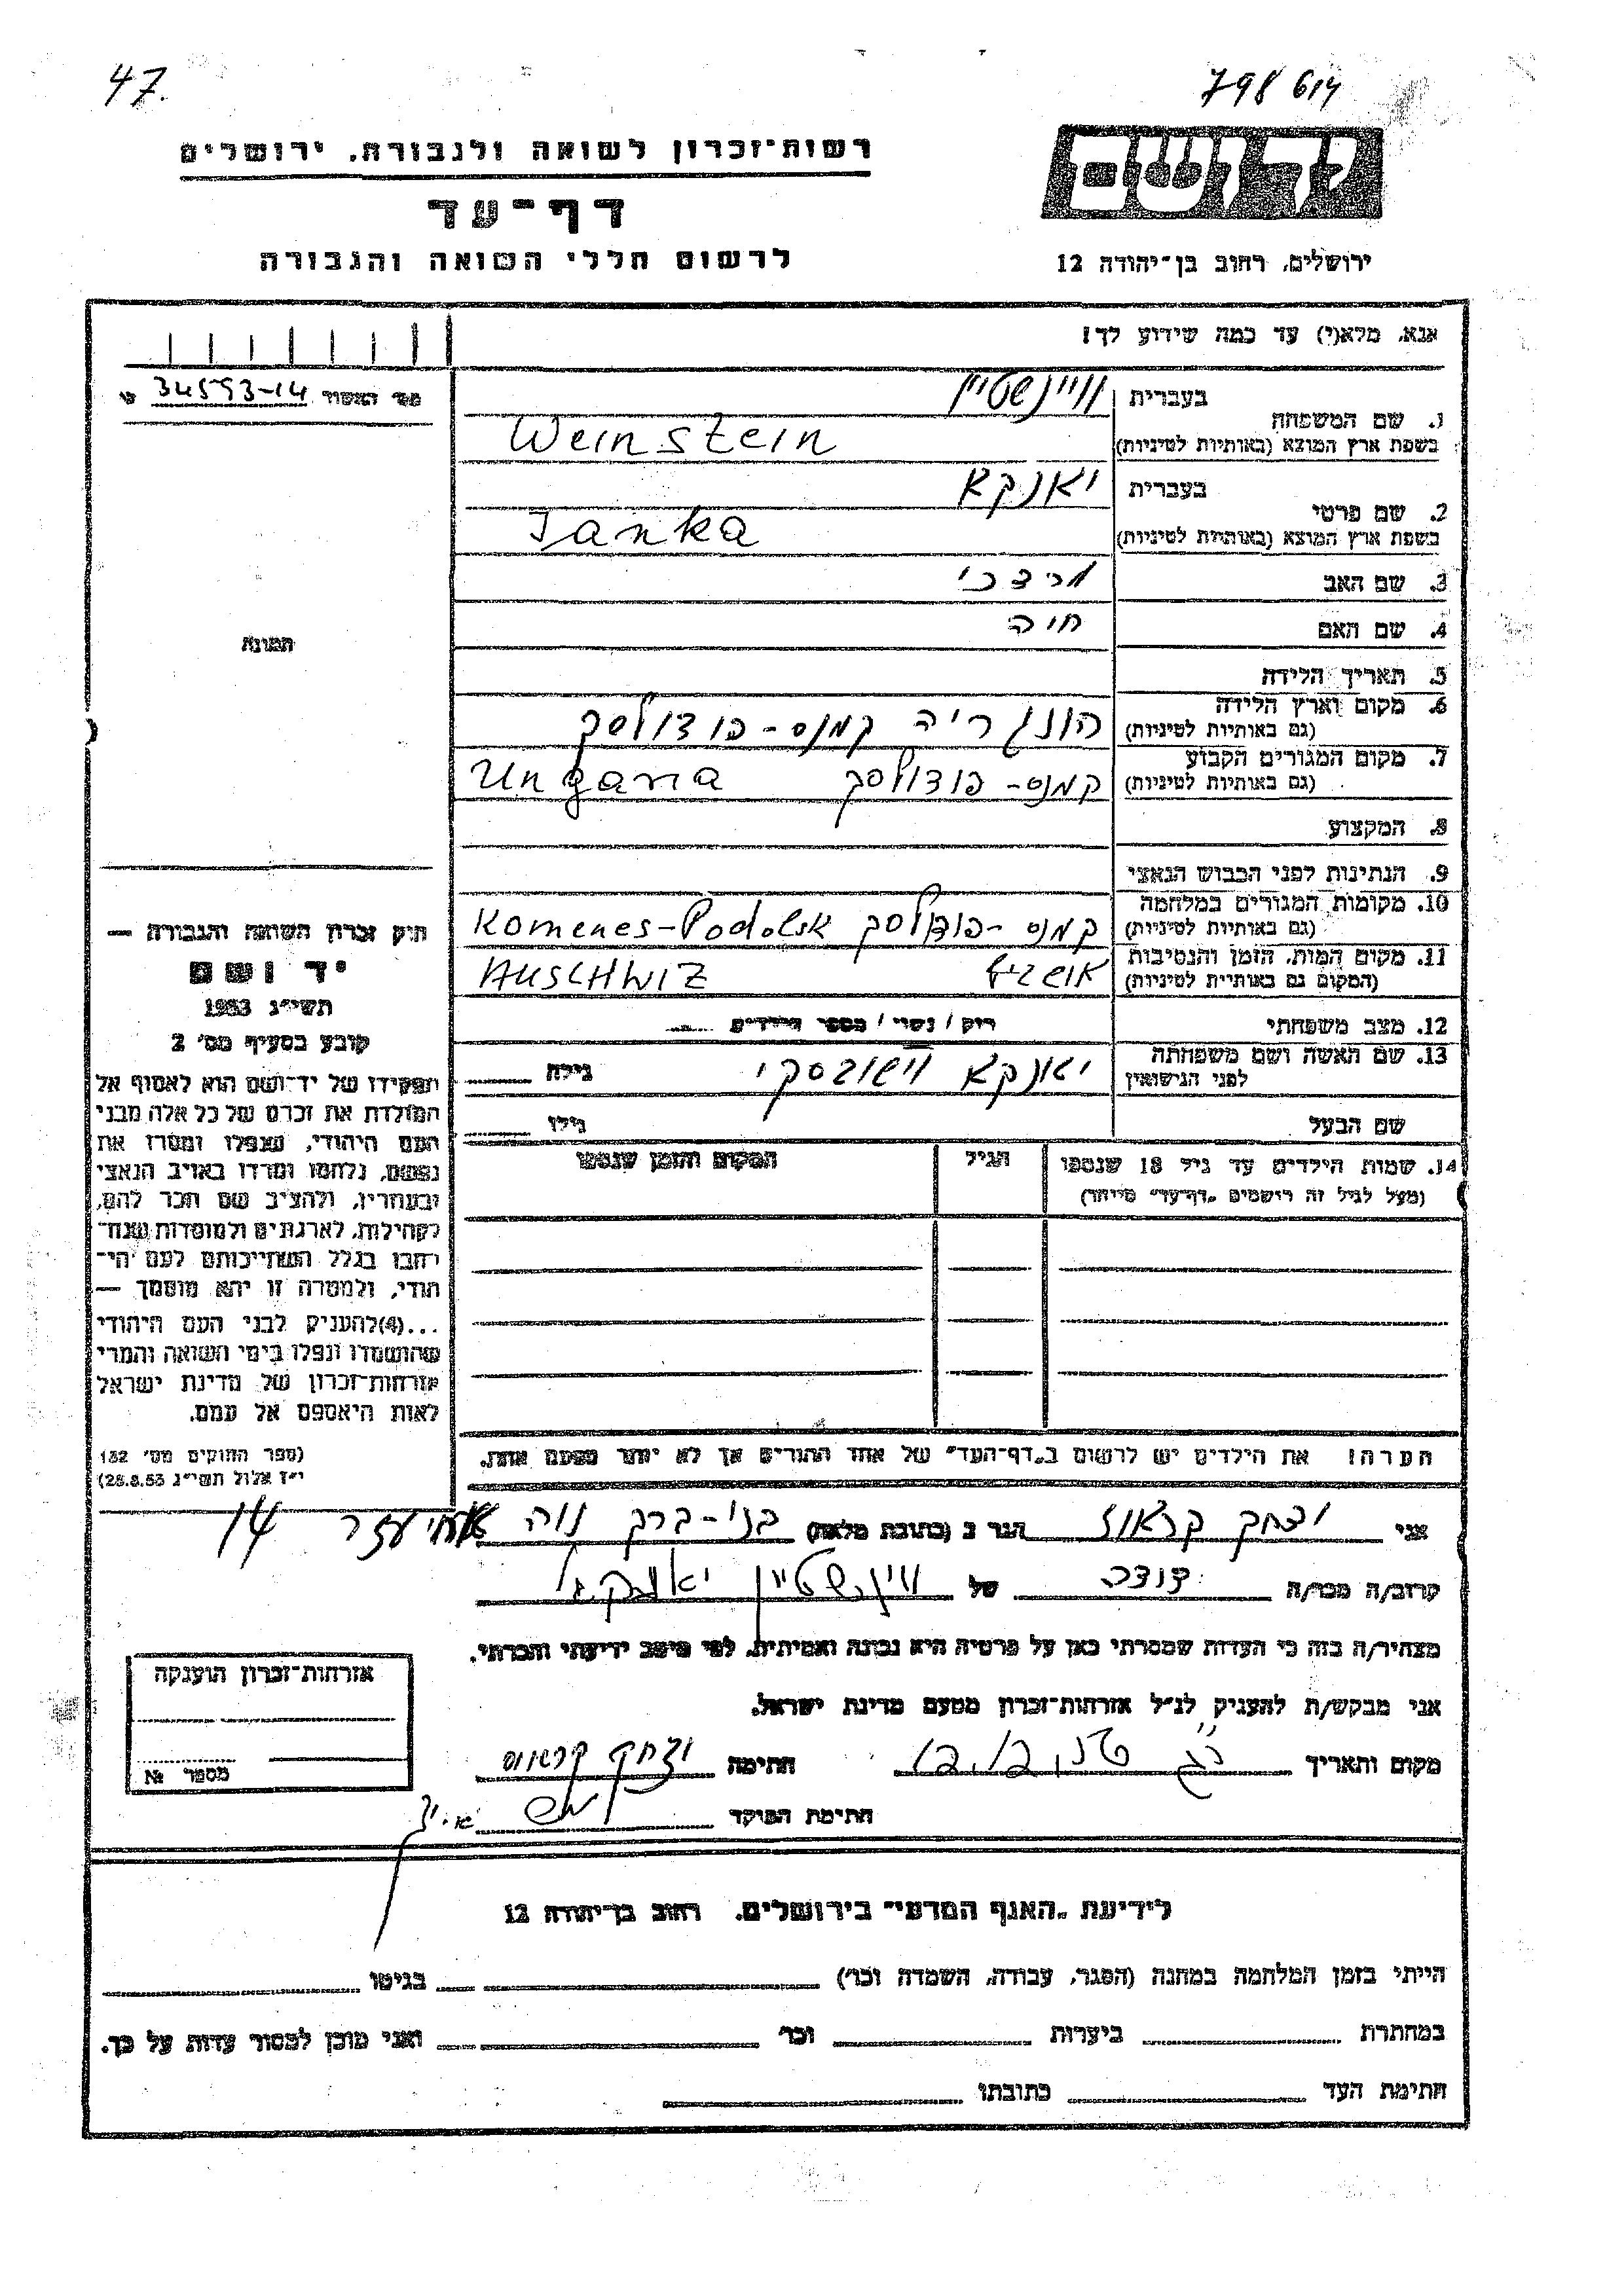 47.
798 614
רשות־זכרון לשואה ולגבורה, ירושלים
דף־עד
לרשום חללי השואה והגבורה
יד ושם
ירושלים, רחוב בן־יהודה 12
אנא, מלא(י) עד כמה שידוע לך!
34593-14
תמונה
1. שם המשפחה
בעברית
וויינשטיין
בשפת ארץ המוצא (באותיות לטיניות)
Weinstein
2. שם פרטי
בעברית
יאנקא
בשפת ארץ המוצא (באותיות לטיניות)
Janka
3. שם האב
מרדכי
4. שם האם
חיה
5. תאריך הלידה
6. מקום וארץ הלידה
(גם באותיות לטיניות)
הונגריה קמנס-פודולסק
7. מקום המגורים הקבוע
(גם באותיות לטיניות)
קמנס-פודולסק Ungaria
8. המקצוע
9. הנתינות לפני הכבוש הנאצי
10. מקומות המגורים במלחמה
(גם באותיות לטיניות)
קמנס-פודולסק Komenes-Podolsk
11. מקום המות, הזמן והנסיבות
(המקום גם באותיות לטיניות)
AUSCHWIZ
12. מצב משפחתי
רוק / נשוי / מספר הילדים
13. שם האשה ושם משפחתה
לפני הנישואין
יאנקא
גילה
שם הבעל
גילו
14. שמות הילדים עד גיל 18 שנספו
(מעל לגיל זה רושמים "דף־עד" מיוחד)
הגיל
המקום והזמן שנספו
חוק זכרון השואה והגבורה —
יד ושם
תשי״ג 1953
קובע בסעיף מס׳ 2
תפקידו של יד־ושם הוא לאסוף אל
המולדת את זכרם של כל אלה מבני
העם היהודי, שנפלו ומסרו את
נפשם, נלחמו ומרדו באויב הנאצי
ובעוזריו, ולהציב שם וזכר להם,
לקהילות, לארגונים ולמוסדות שנח־
רבו בגלל השתייכותם לעם הי־
הודי, ולמטרה זו יהא מוסמך —
...(4)להעניק לבני העם היהודי
שהושמדו ונפלו בימי השואה והמרי
אזרחות־זכרון של מדינת ישראל
לאות היאספם אל עמם.
(ספר החוקים מס׳ 132
י״ז אלול תשי״ג 28.8.53)
הערה! את הילדים יש לרשום ב"דף־העד" של אחד ההורים אך לא יותר מפעם אחת.
אני יצחק קראוז הגר ב (כתובת מלאה) בני-ברק נוה אחיעזר 14
קרוב/ה מכר/ה דודה של וויינשטיין
מצהיר/ה בזה כי העדות שמסרתי כאן על פרטיה היא נכונה ואמיתית, לפי מיטב ידיעתי והכרתי.
אני מבקש/ת להעניק לנ״ל אזרחות־זכרון מטעם מדינת ישראל.
מקום ותאריך
חתימה יצחק קראוס
חתימת הפוקד
אזרחות־זכרון הוענקה
מספר №
לידיעת "האגף המדעי" בירושלים, רחוב בן־יהודה 12
הייתי בזמן המלחמה במחנה (הסגר, עבודה, השמדה וכו׳) בגיטו
במחתרת ביערות וכו׳ ואני מוכן למסור עדות על כך.
חתימת העד כתובתו